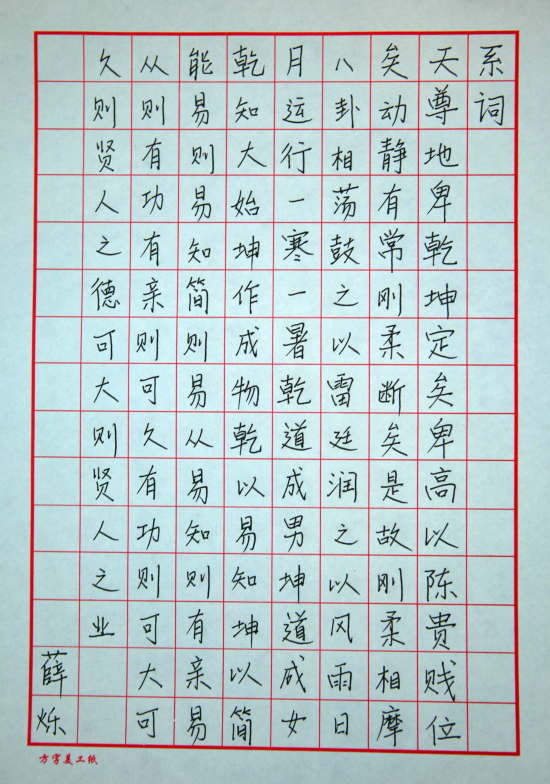 系词
天尊地卑乾坤定矣卑高以陈贵贱位
矣动静有常刚柔断矣是故刚柔相摩
八卦相荡鼓之以雷廷润之以风雨日
月运行一寒一暑乾道成男坤道成女
乾知大始坤作成物乾以易知坤以简
能易则易知简则易从易知则有亲易
从则有功有亲则可久有功则可大可
久则贤人之德可大则贤人之业
薛烁
方字美工纸